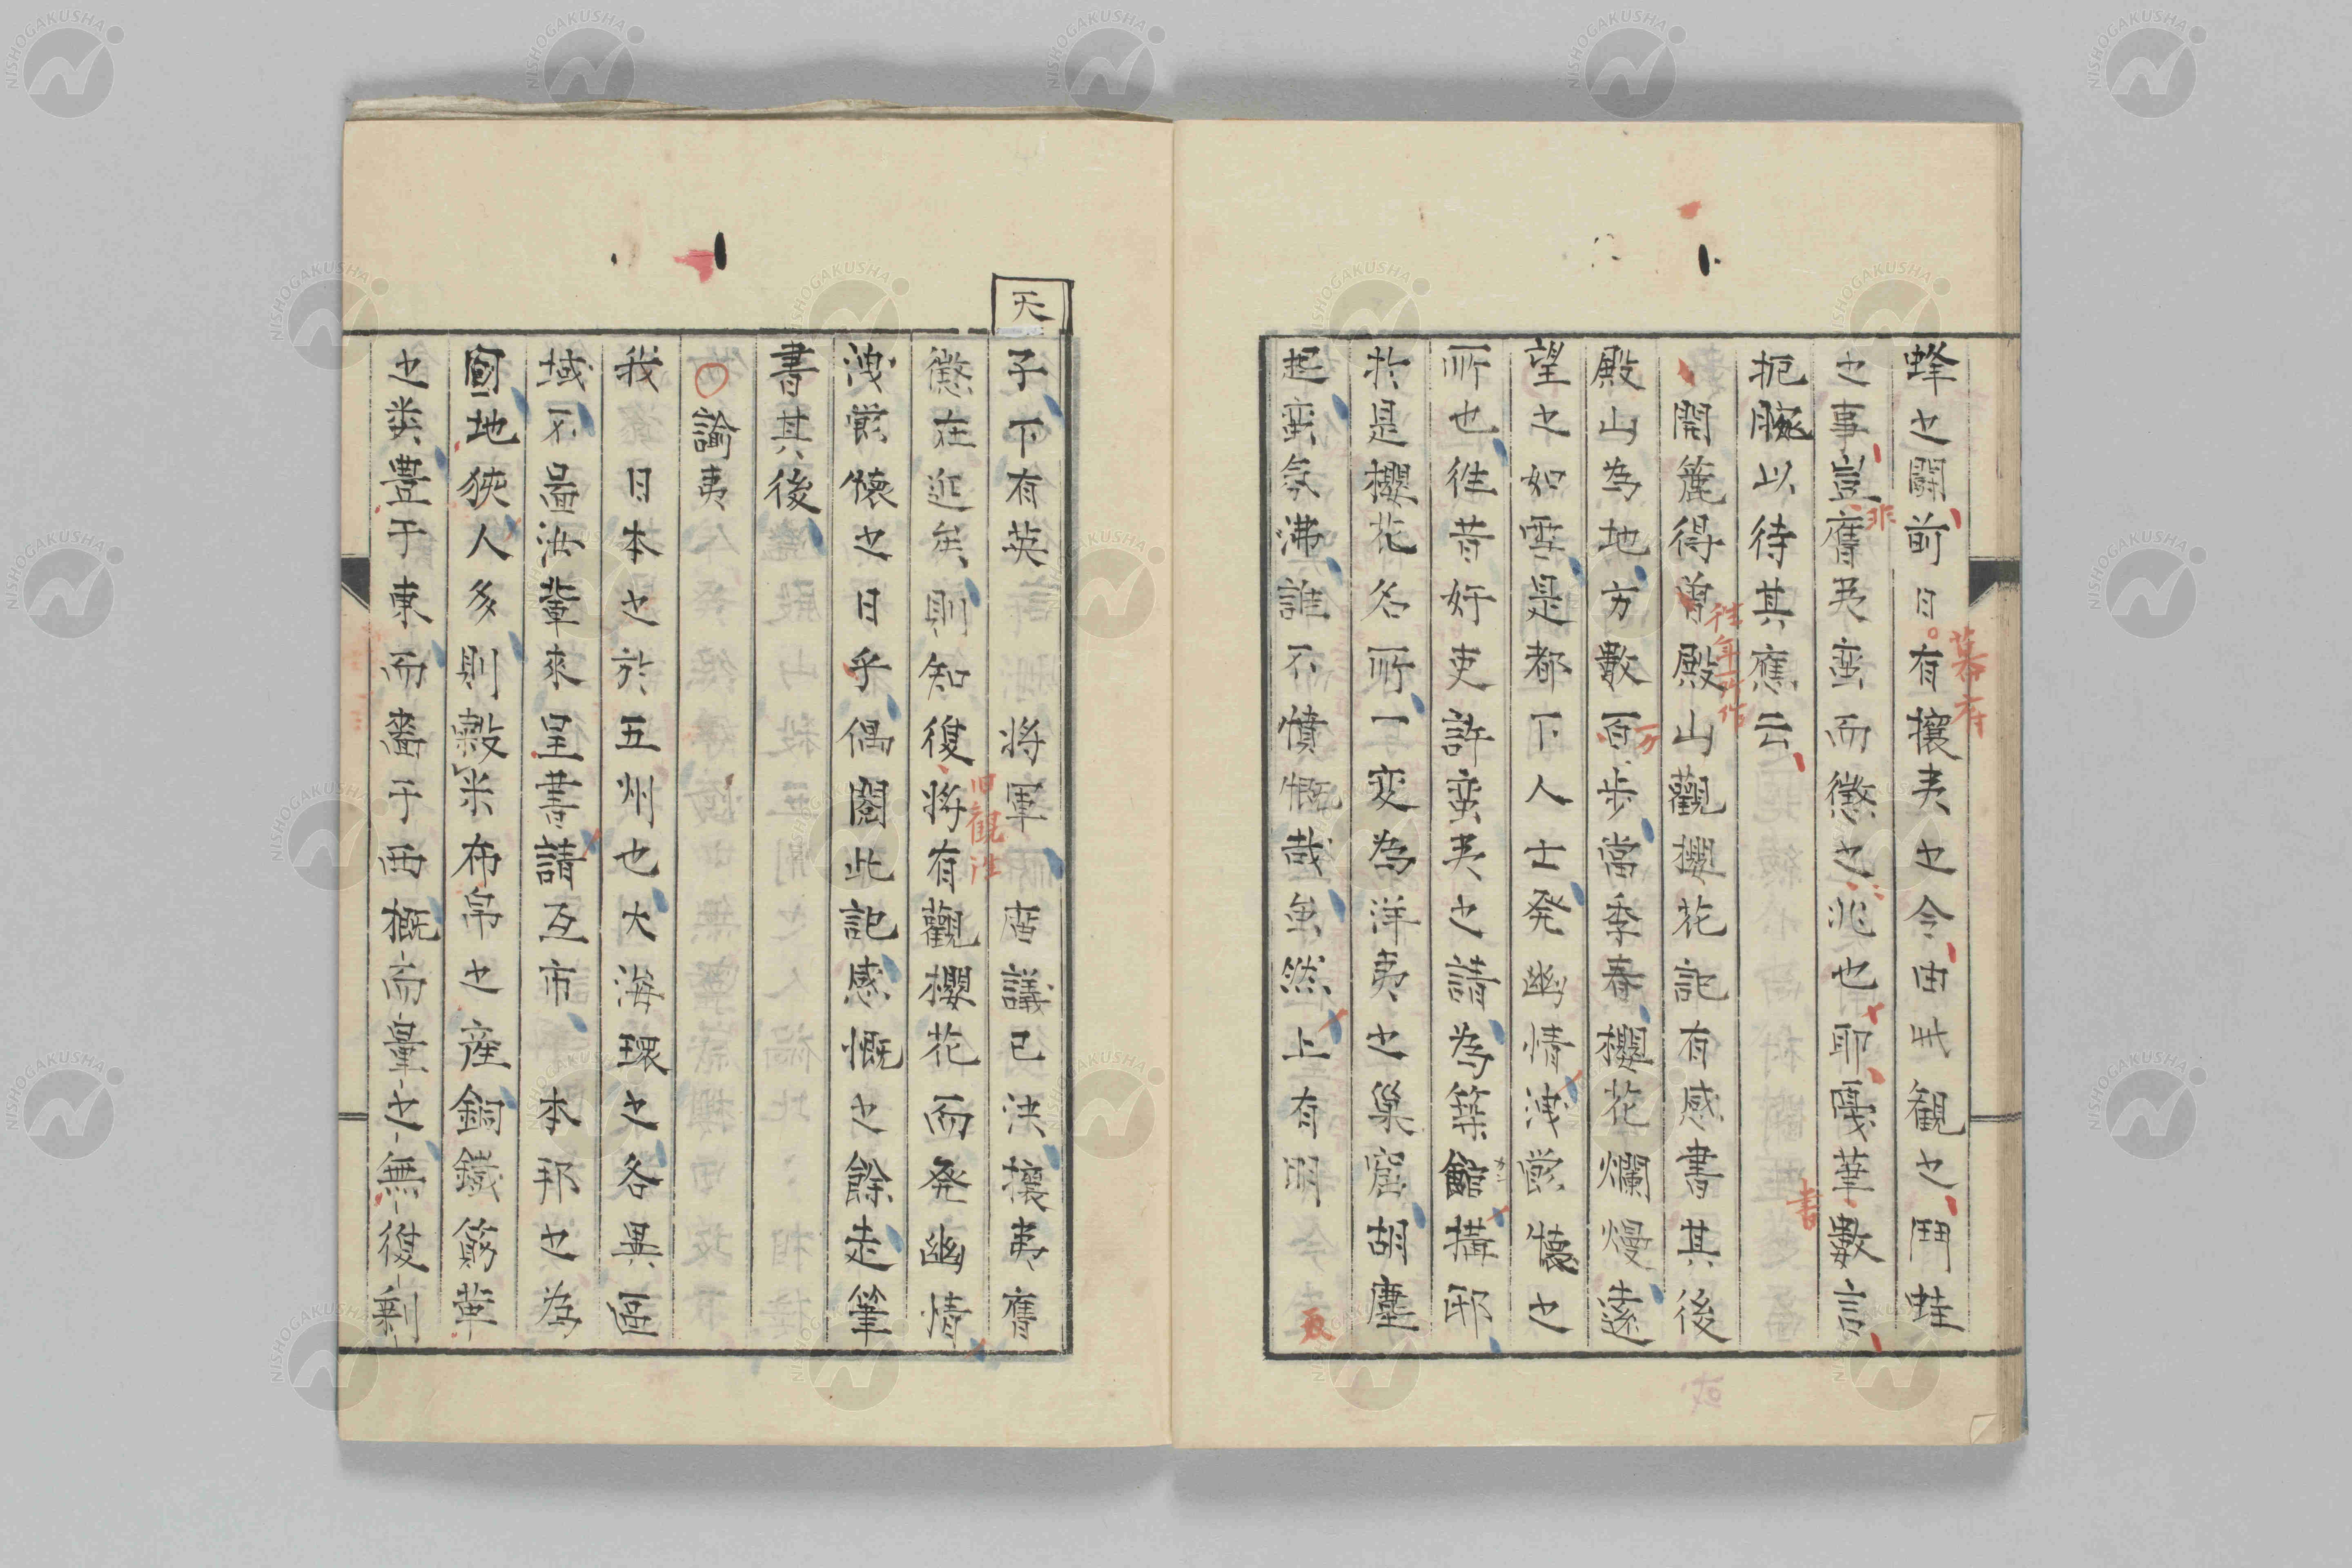 蜂之闘前日有攘夷之令由此観之鬥蛙
幕府
之事豈奮夷蛮而懲之兆也耶戞筆數言
非
扼腕以待其應云
書
開簏得曽殿山觀櫻花記有感書其後
往年所作
殿山為地方數百歩當季春櫻花爛熳遠
万
望之如雲是都下人士発幽情洩鬱懐之
所也往昔好吏許蛮夷之請為築館搆邸
於是櫻花名所一変為洋夷之巣窟胡塵
起蛮気沸誰不憤慨哉虽然上有明
天
子下有英 将軍 廟議已决攘夷奮
懲在近矣則知復将有觀櫻花而発幽情
旧観
洩鬱懐之日乎偶閲此記感慨之餘走筆
書其後
○諭夷
我日本之於五州也大海環之各異區
域不啚汝輩來呈書請互市 本邦之為
國地狹人多則穀米布帛之産銅鐵筋革
之类豊于東而嗇于西概而量之無復剰
NISHOGAKUSHA